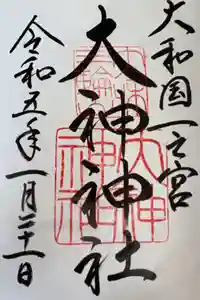 大和国一之宮
大神神社
令和五年一月二十一日